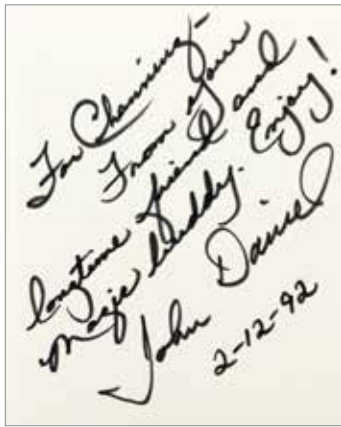 For Channing-
From your
longtime friend and
Magic buddy. Enjoy!
John Daniel
2-12-92